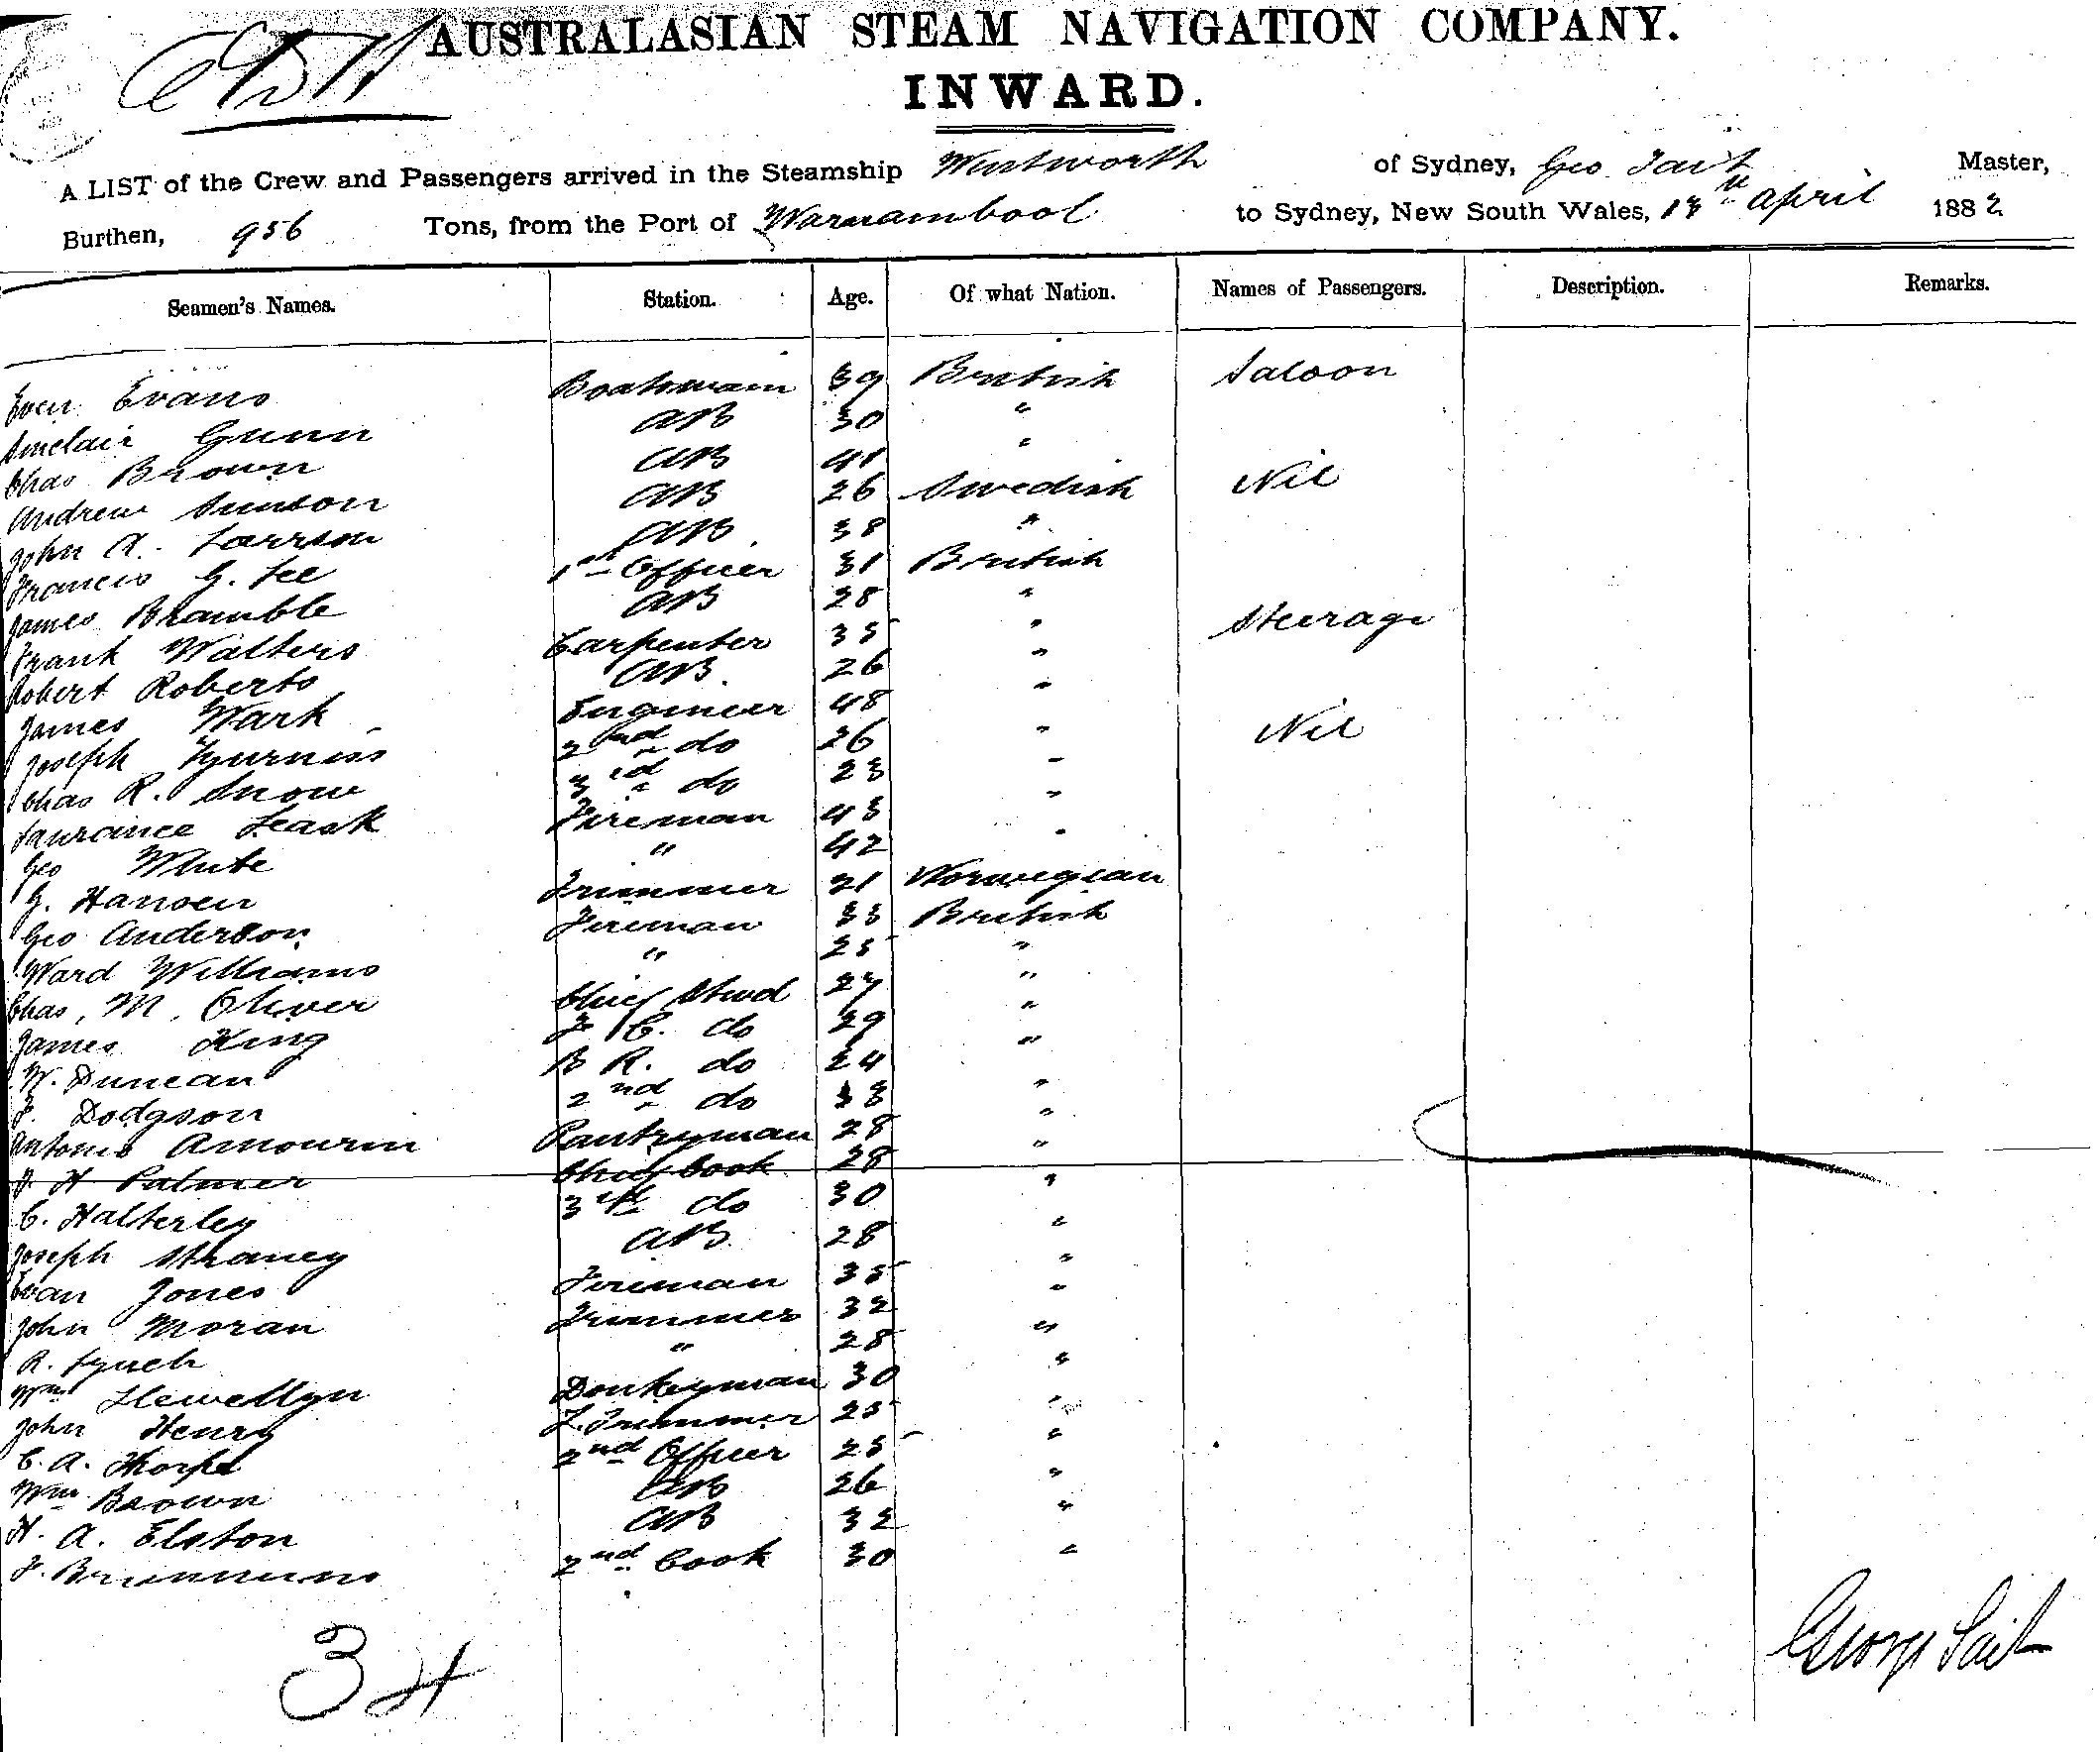 AUSTRALASIAN STEAM NAVIGATION COMPANY.
INWARD.
A LIST of the Crew and Passengers arrived in the Steamship Wentworth of Sydney, Geo Tait Master,
Burthen, 956 Tons, from the Port of Warnambool to Sydney, New South Wales, 18th April 1882
Seamen's Names. Station. Age. Of what Nation. Names of Passengers. Description. Remarks.
Even Evans Boatswain 39 British Saloon
Sinclair Gunn AB 30 "
Chas Brown AB 41 "
Andrew Sunson AB 26 Swedish Nil
John A. Larrson AB 38 "
Francis G. Lee 1st Officer 31 British
James Bramble AB 28 "
Frank Walters Carpenter 35 " Steerage
Robert Roberts AB 26 "
James Wark Engineer 48 "
Joseph Fyurniss 2nd do 26 " Nil
Chas R. Snow 3rd do 23 "
Laurance Leask Fireman 43 "
Geo White " 42 "
G. Hansen Trimmer 21 Norwegian
Geo Anderson Fireman 33 British
Ward Williams " 25 "
Chas. M. Oliver Chief Stwd 27 "
James King F C. do 29 "
W. Duncan B R. do 24 "
F. Dodgson 2nd do 33 "
Antonio Amourin Pantryman 28 "
J. H Palmer Chief Cook 28 "
C. Halterley 3rd do 30 "
Joseph Straney AB 28 "
Evan Jones Fireman 35 "
John Moran Trimmer 32 "
R. Lynch " 28 "
Wm Llewellyn Donkeyman 30 "
John Henry L. Trimmer 25 "
C. A. Thorpe 2nd Officer 25 "
Wm Brown AB 26 "
H. A. Elston AB 32 "
F. 2nd Cook 30 "
34
George Tait